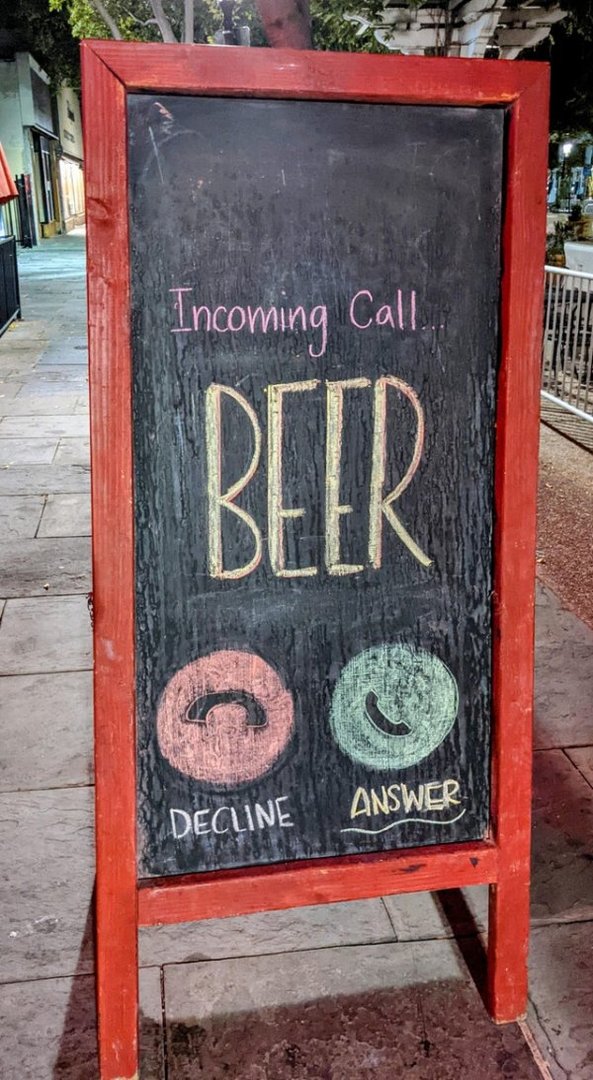 Incoming Call...
BEER
DECLINE ANSWER